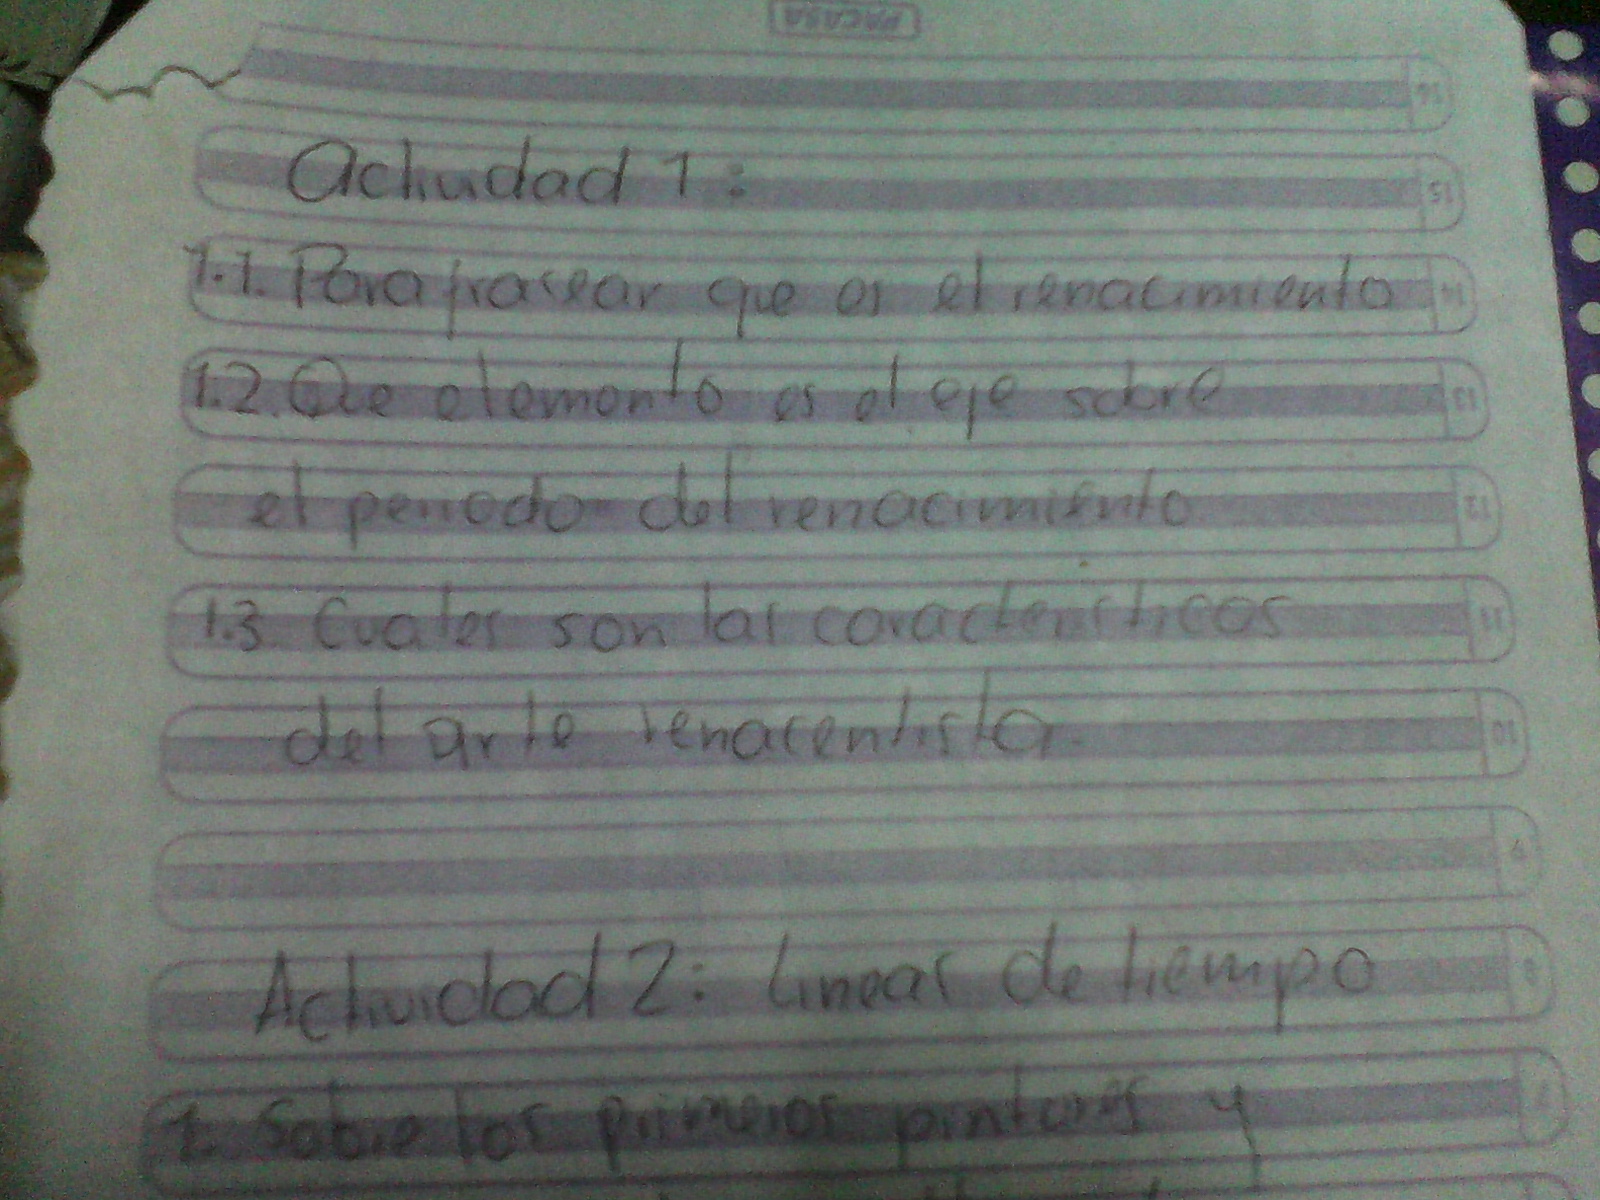 PACASA
16
Actividad 1:
15
1.1. Parafrasear que es el renacimiento
14
1.2. Que elemento es el eje sobre
13
el periodo del renacimiento
12
1.3. Cuales son las caracteristicas
11
del arte renacentista.
10
9
Actividad 2: Lineas de tiempo
8
1. Sobre los primeros pintores y
7